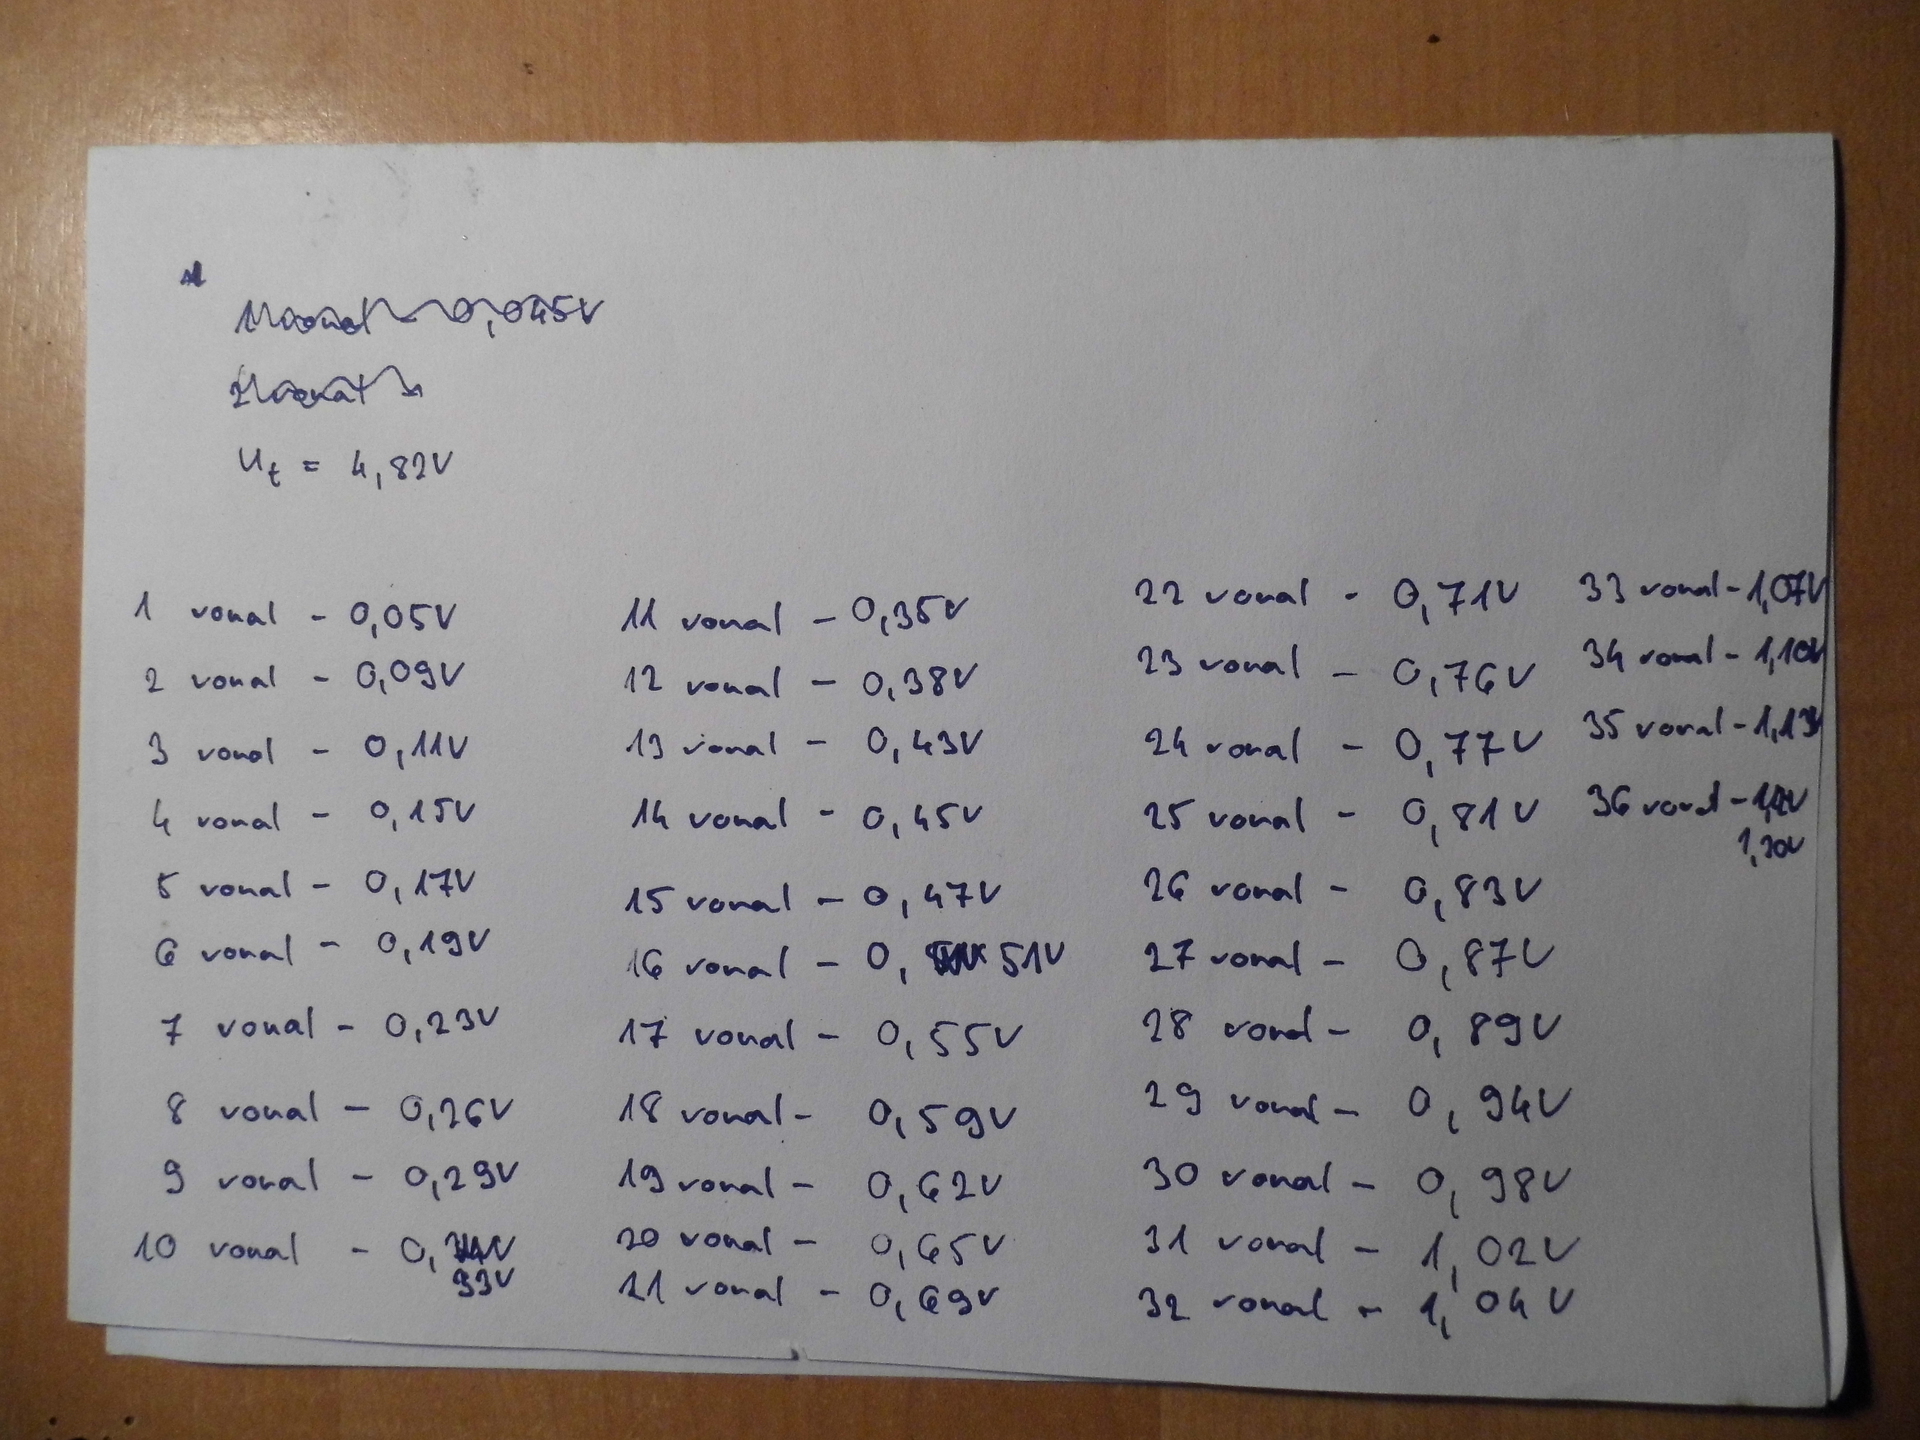 1 vonal - 0,045V
2 vonal -
Ut = 4,82V
1 vonal - 0,05V
2 vonal - 0,09V
3 vonal - 0,11V
4 vonal - 0,15V
5 vonal - 0,17V
6 vonal - 0,19V
7 vonal - 0,23V
8 vonal - 0,26V
9 vonal - 0,29V
10 vonal - 0,
33V
11 vonal - 0,35V
12 vonal - 0,38V
13 vonal - 0,43V
14 vonal - 0,45V
15 vonal - 0,47V
16 vonal - 0, 51V
17 vonal - 0,55V
18 vonal - 0,59V
19 vonal - 0,62V
20 vonal - 0,65V
21 vonal - 0,69V
22 vonal - 0,71V
23 vonal - 0,76V
24 vonal - 0,77V
25 vonal - 0,81V
26 vonal - 0,83V
27 vonal - 0,87V
28 vonal - 0,89V
29 vonal - 0,94V
30 vonal - 0,98V
31 vonal - 1,02V
32 vonal - 1,04V
33 vonal - 1,07V
34 vonal - 1,10V
35 vonal - 1,13V
36 vonal -
1,20V